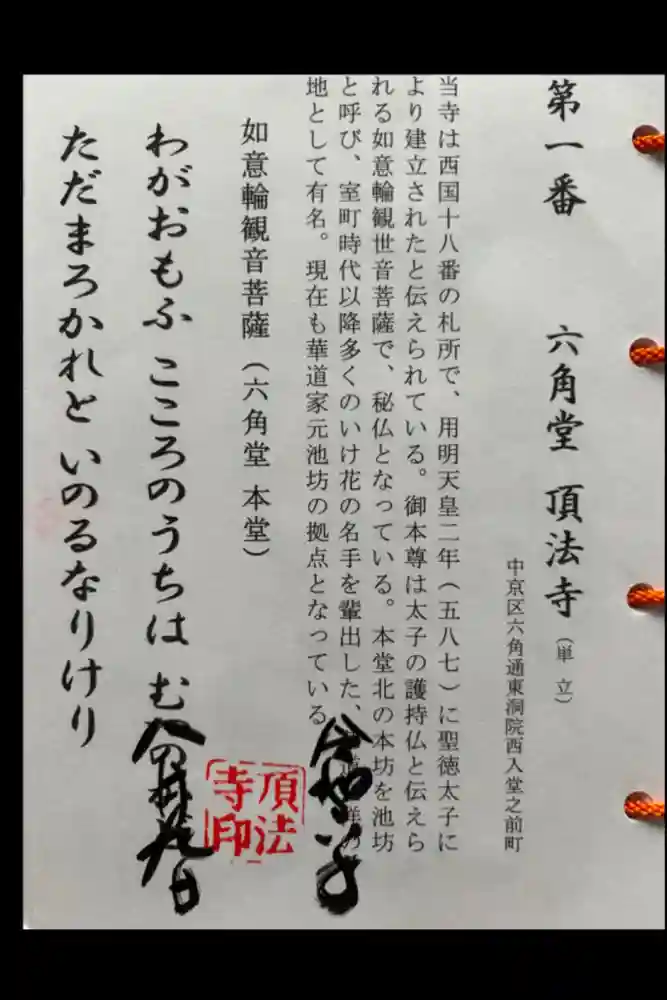 第一番 六角堂 頂法寺（単立）
中京区六角通東洞院西入堂之前町
当寺は西国十八番の札所で、用明天皇二年（五八七）に聖徳太子に
より建立されたと伝えられている。御本尊は太子の護持仏と伝えら
れる如意輪観世音菩薩で、秘仏となっている。本堂北の本坊を池坊
と呼び、室町時代以降多くのいけ花の名手を輩出した、道
地として有名。現在も華道家元池坊の拠点となっている
如意輪観音菩薩（六角堂 本堂）
わがおもふ こころのうちは む
ただまろかれと いのるなりけり
頂法
寺印